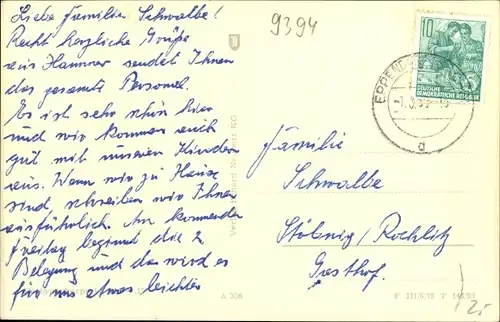 Liebe Familie Schwalbe!
Recht herzliche Grüße
aus Hammer sendet Ihnen
das gesamte Personal.
Es ist sehr schön hier
und wir kommen auch
gut mit unseren Kindern
aus. Wenn wir zu Hause
sind, schreiben wir Ihnen
ausführlich. Am kommenden
Freitag beginnt die 2
Belegung und das wird es
für uns etwas leichter
9394
10
DEUTSCHE
DEMOKRATISCHE REPUBLIK
EPPEND
a
Familie
Schwalbe
Rochlitz
Gasthof.
A 556
25